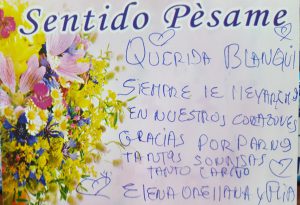 Sentido Pèsame
QUERIDA BLANQUI
SIEMPRE le lleVAREMOS
EN NUESTROS CORAZONES
GRACIAS POR
TANTAS SONRISAS
TANTO CARIÑO
ELENA ORELLANA y FLIA